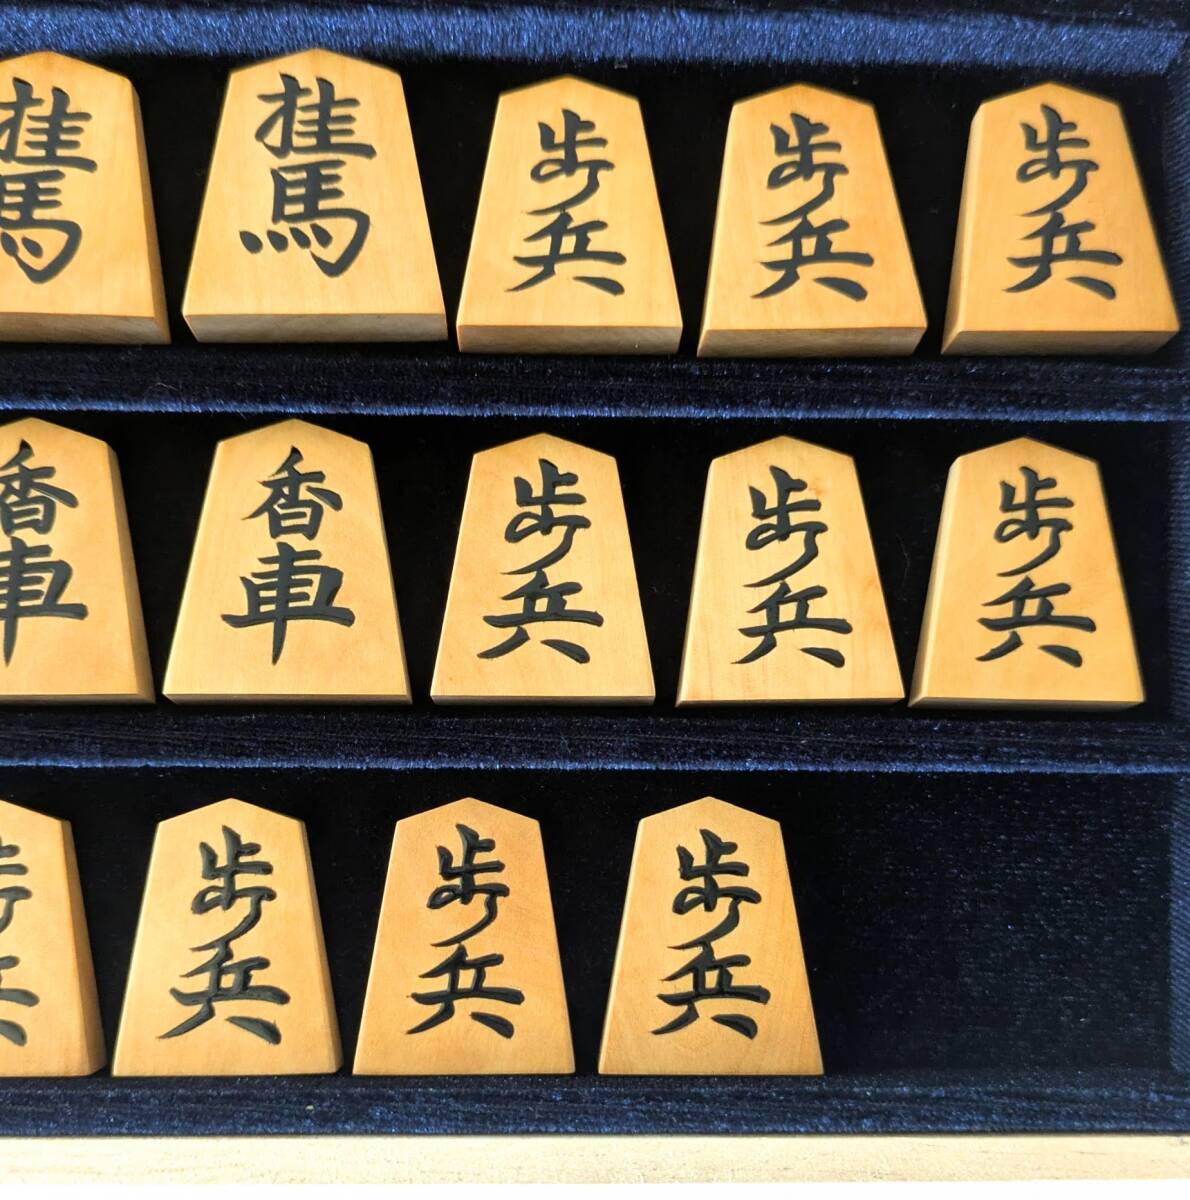 桂馬
桂馬
歩兵
歩兵
歩兵
香車
香車
歩兵
歩兵
歩兵
歩兵
歩兵
歩兵
歩兵